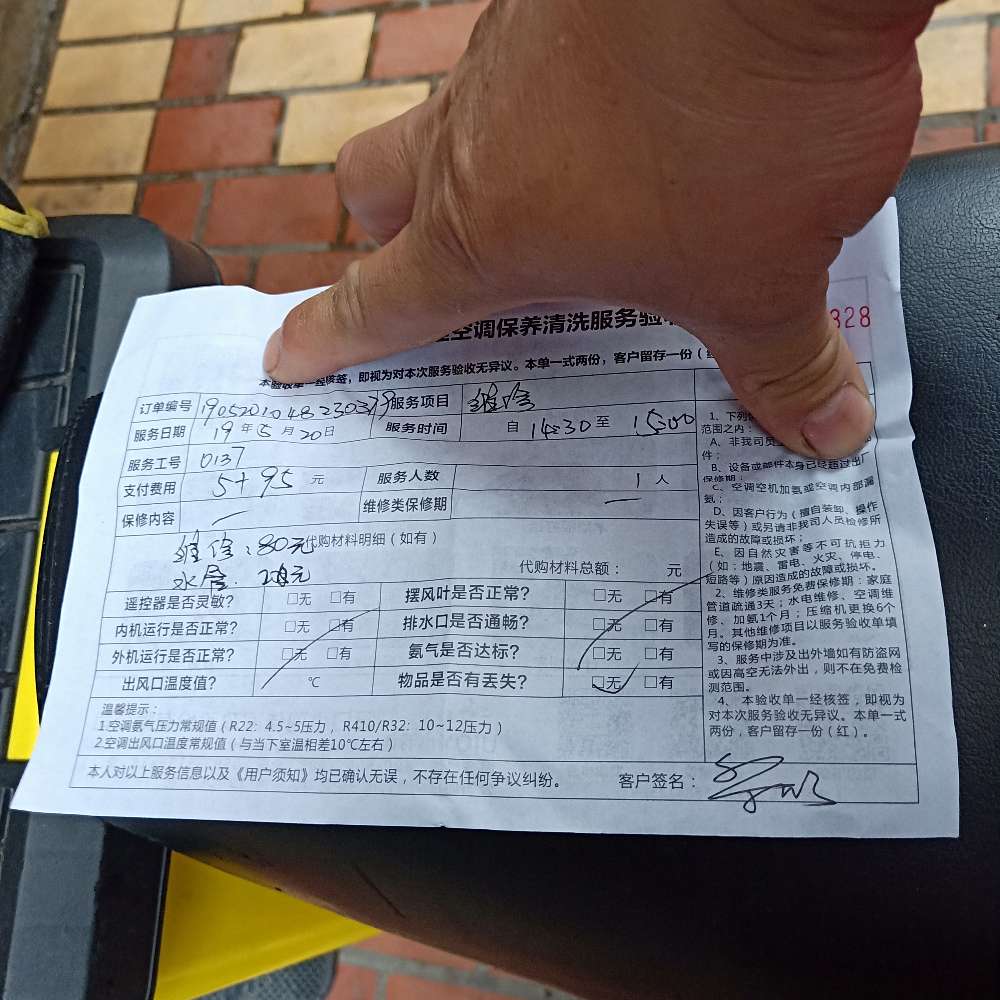 空调保养清洗服务验 328
本验收单一经核签，即视为对本次服务验收无异议。本单一式两份，客户留存一份（
订单编号 服务项目
服务日期 19年5月20日 服务时间 自 14:30 至 15:00
服务工号 0137
支付费用 5+95 元 服务人数 1 人
保修内容 — 维修类保修期 —
代购材料明细（如有）
维修：80元
代购材料总额： 元
遥控器是否灵敏？ □无 □有 摆风叶是否正常？ □无 □有
内机运行是否正常？ □无 □有 排水口是否通畅？ □无 □有
外机运行是否正常？ □无 □有 氨气是否达标？ □无 □有
出风口温度值？ ℃ 物品是否有丢失？ □无 □有
温馨提示：
1.空调氨气压力常规值（R22：4.5~5压力，R410/R32：10~12压力）
2.空调出风口温度常规值（与当下室温相差10℃左右）
本人对以上服务信息以及《用户须知》均已确认无误，不存在任何争议纠纷。 客户签名：
1、下列
范围之内：
A、非我司员
件；
B、设备或部件本身已经超过出厂
保修期；
C、空调空机加氨或空调内部漏
氨；
D、因客户行为（擅自装卸、操作
失误等）或另请非我司人员检修所
造成的故障或损坏；
E、因自然灾害等不可抗拒力
（如：地震、雷电、火灾、停电、
短路等）原因造成的故障或损坏。
2、维修类服务免费保修期：家庭
管道疏通3天；水电维修、空调维
修、加氨1个月；压缩机更换6个
月。其他维修项目以服务验收单填
写的保修期为准。
3、服务中涉及出外墙如有防盗网
或因高空无法外出，则不在免费检
测范围。
4、本验收单一经核签，即视为
对本次服务验收无异议。本单一式
两份，客户留存一份（红）。